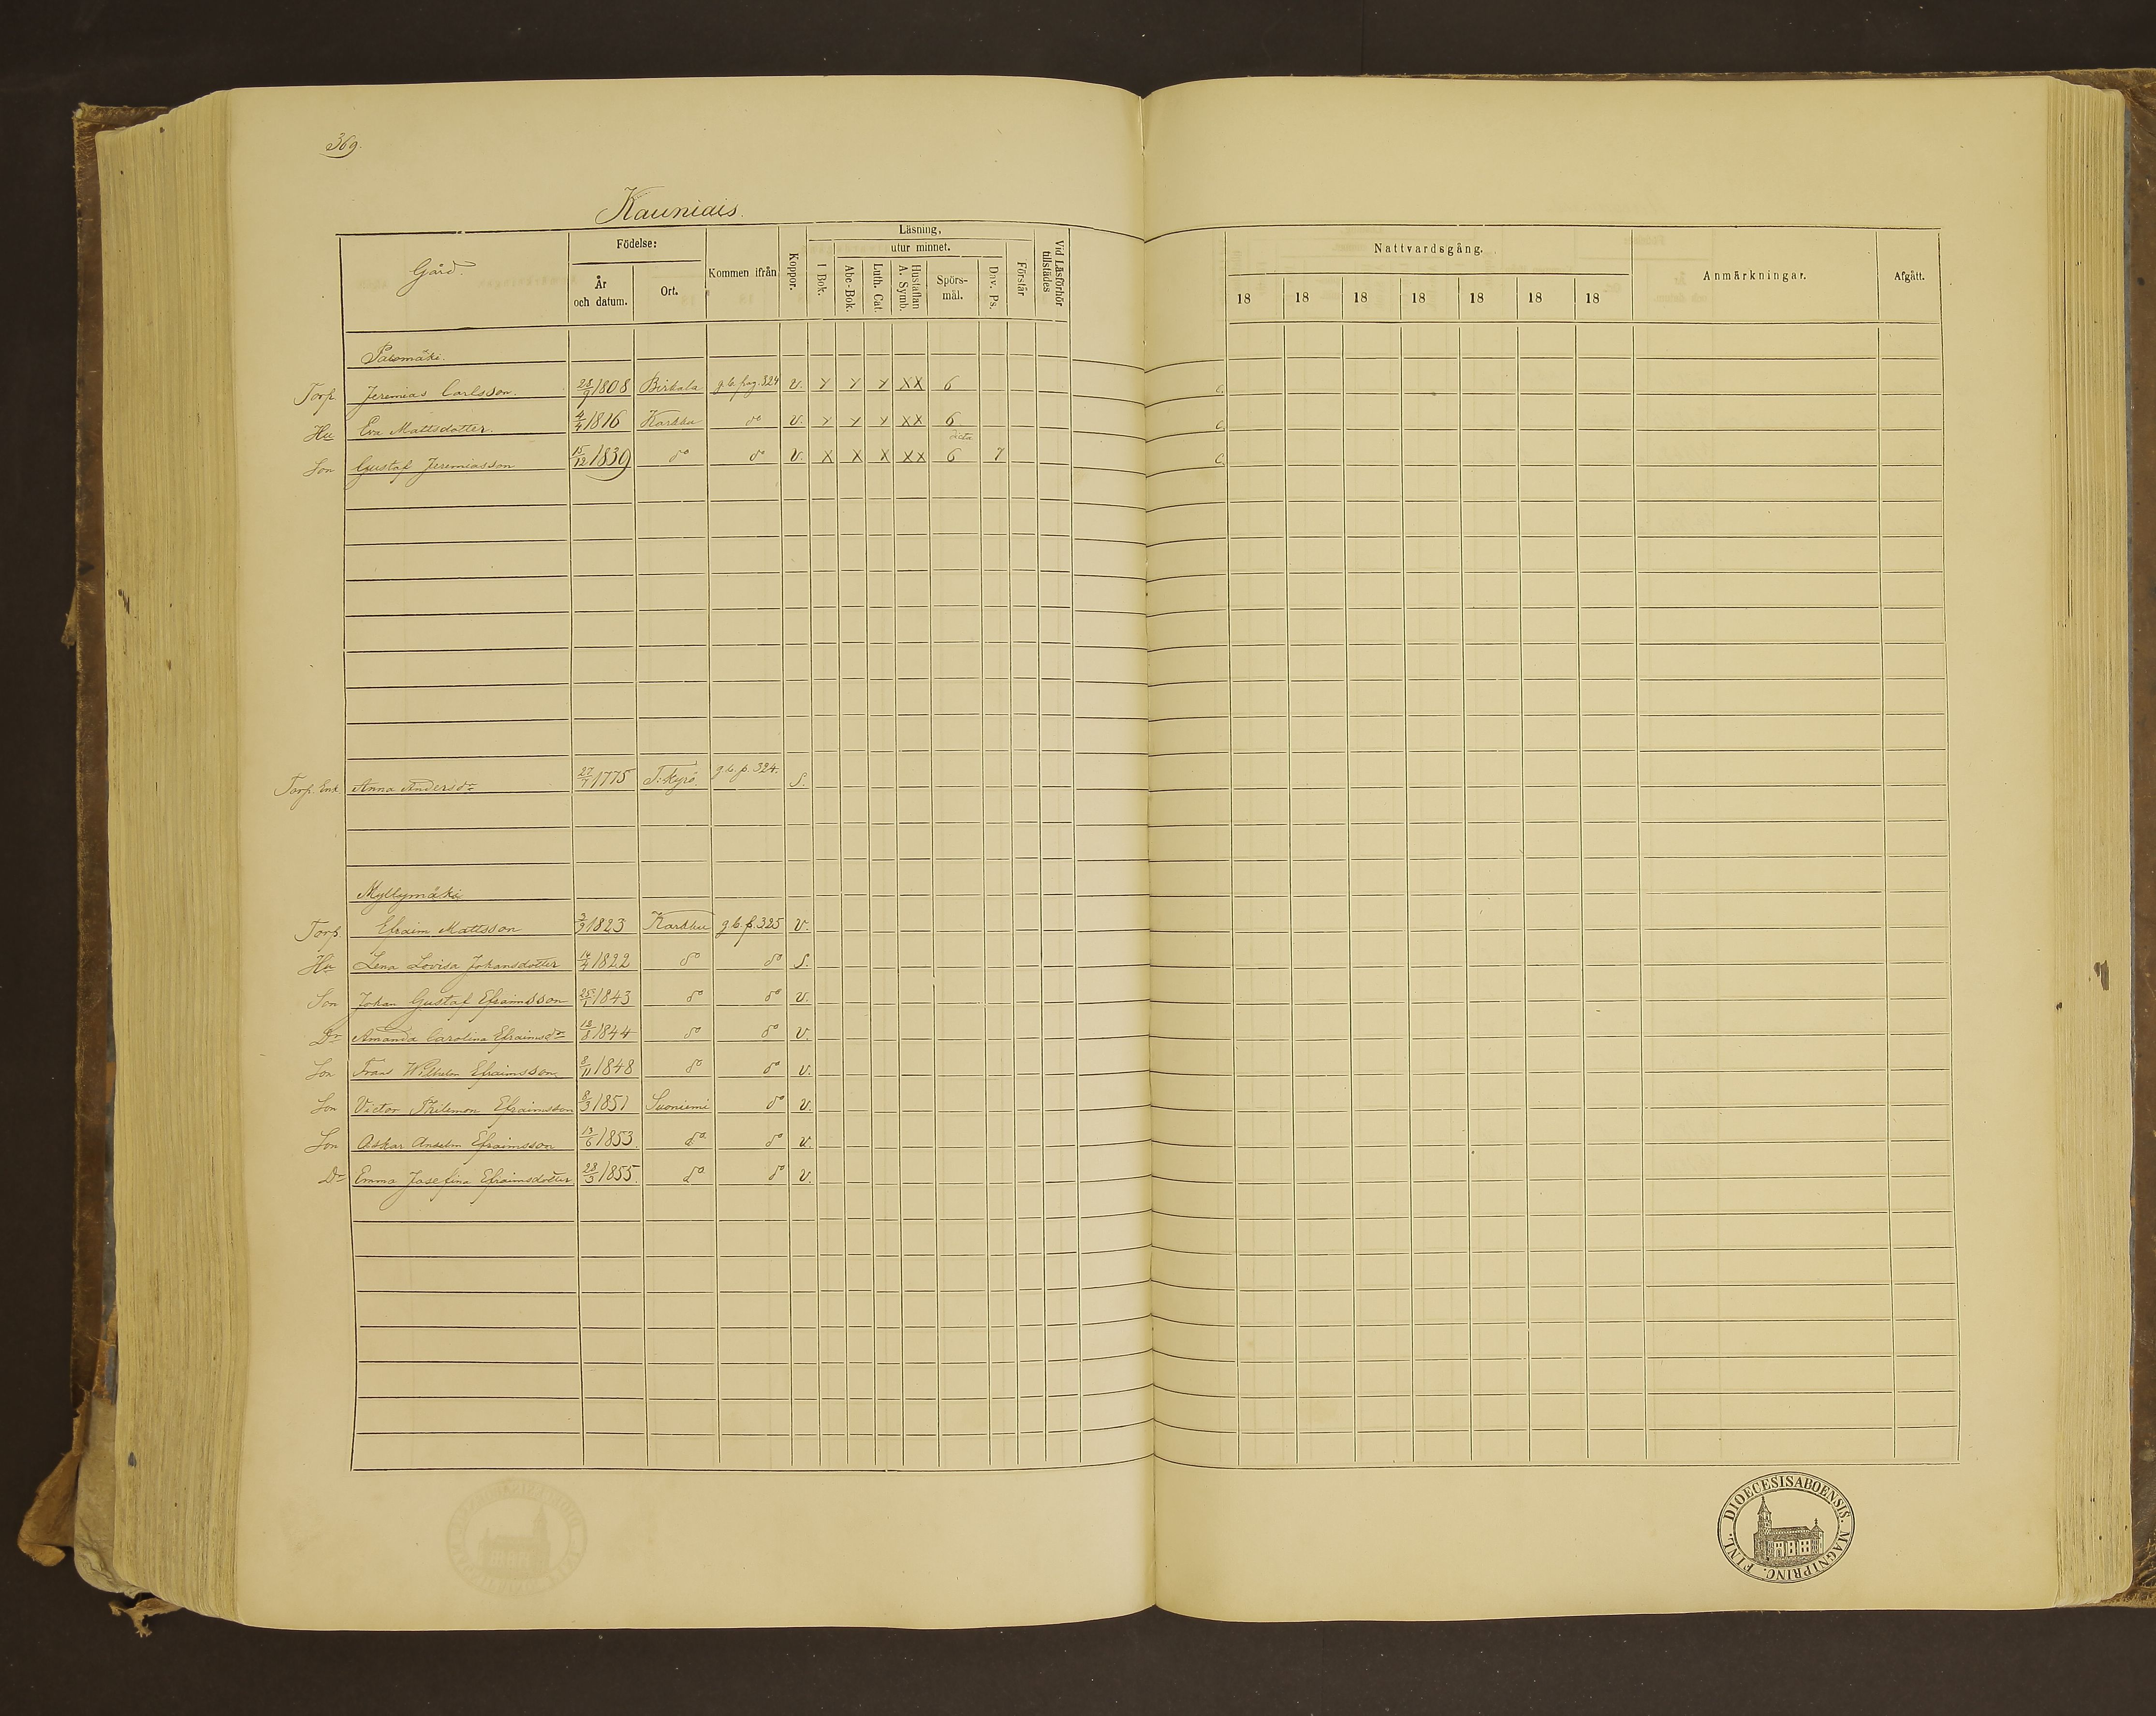 369.
Kauniais.
Gård.
Födelse:
År och datum.
Ort.
Kommen ifrån
Koppor.
Läsning,
I Bok.
utur minnet.
Abc-Bok.
Luth. Cat.
Hustaflan A. Symb.
Spörs-mål.
Dav. Ps.
Förstår
Vid Läsförhör tillstädes
Nattvardsgång.
18 18 18 18 18 18 18
Anmärkningar.
Afgått.
Torp. Jeremias Carlsson. 28/9 1808 Birkala g.b. pag. 324 v. x x x xx 6 c.
Hu Eva Mattsdotter. 4/4 1816 Karkku do v. x x x xx 6 c.
dicta
Son Gustaf Jeremiasson 15/12 1839 do do v. x x x xx 6 7 c.
Torp. Enk Anna Andersdr 27/7 1775 T:kyrö. g.b. p. 324. S.
Myllymäki
Torp. Efraim Mattsson 3/9 1823 Karkku g.b. p. 325 v.
Hu Lena Lovisa Johansdotter 14/4 1822 do do S.
Son Johan Gustaf Efraimsson 25/1 1843 do do v.
Dr Amanda Carolina Efraimsdr 12/8 1844 do do v.
Son Frans Wilhelm Efraimsson 8/11 1848 do do v.
Son Victor Philemon Efraimsson 8/3 1851 Suoniemi do v.
Son Oskar Anselm Efraimsson 13/6 1853. do do v.
Dr Emma Josefina Efraimsdotter 28/3 1855. do do v.
FINL. DIOECESIS ABOENSIS. MAGNI PRINC.